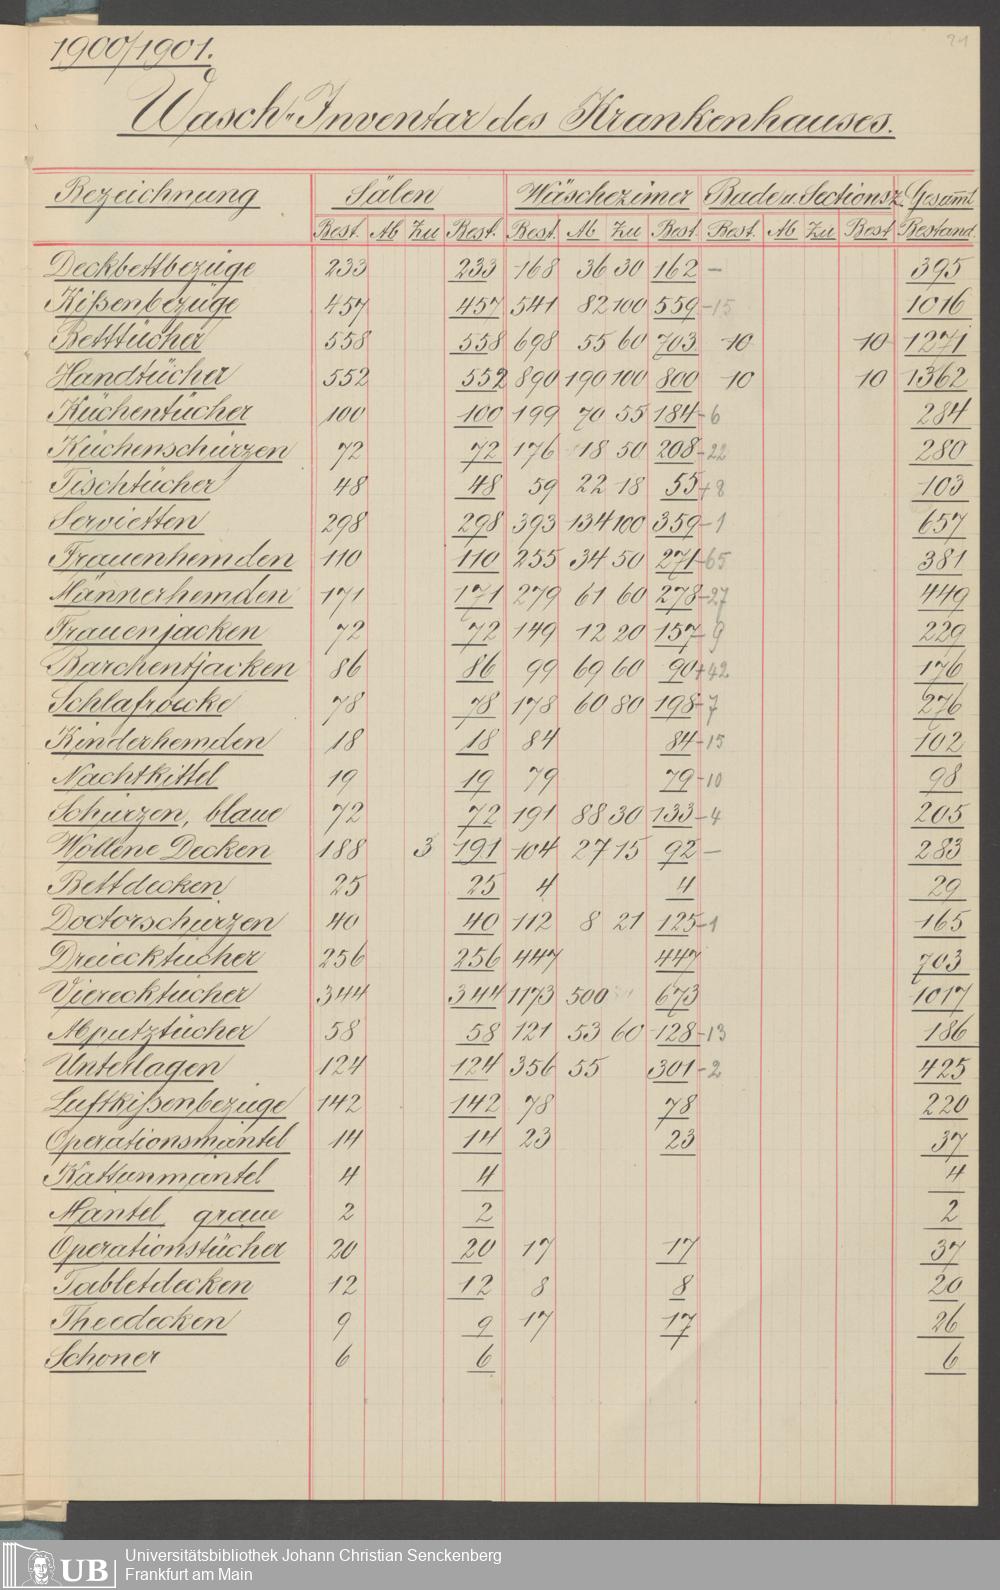 1900/1901.
21
Wasch-Inventar des Krankenhauses.
Bezeichnung Sälen Wäschezimer Bade u. Sections z. Gesamt
Best. Ab Zu Best. Best. Ab Zu Best. Best. Ab Zu Best Bestand.
Deckbettbezüge 233 233 168 36 30 162 – 395
Kißenbezüge 457 457 541 82 100 559 –15 1016
Betttücher 558 558 698 55 60 703 10 10 1271
Handtücher 552 552 890 190 100 800 10 10 1362
Küchentücher 100 100 199 70 55 184 –6 284
Küchenschürzen 72 72 176 18 50 208 –22 280
Tischtücher 48 48 59 22 18 55 +8 103
Servietten 298 298 393 134 100 359 –1 657
Frauenhemden 110 110 255 34 50 271 –65 381
Männerhemden 171 171 279 61 60 278 –27 449
Frauenjacken 72 72 149 12 20 157 –9 229
Barchentjacken 86 86 99 69 60 90 +42 176
Schlafroecke 78 78 178 60 80 198 –7 276
Kinderhemden 18 18 84 84 –15 102
Nachtkittel 19 19 79 79 –10 98
Schürzen, blaue 72 72 191 88 30 133 –4 205
Wollene Decken 188 3 191 104 27 15 92 – 283
Bettdecken 25 25 4 4 29
Doctorschürzen 40 40 112 8 21 125 –1 165
Dreiecktücher 256 256 447 447 703
Vierecktücher 344 344 1173 500 673 1017
Abputztücher 58 58 121 53 60 128 –13 186
Unterlagen 124 124 356 55 301 –2 425
Luftkißenbezüge 142 142 78 78 220
Operationsmäntel 14 14 23 23 37
Kattunmäntel 4 4 4
Mäntel graue 2 2 2
Operationstücher 20 20 17 17 37
Tabletdecken 12 12 8 8 20
Theedecken 9 9 17 17 26
Schoner 6 6 6
UB
Universitätsbibliothek Johann Christian Senckenberg
Frankfurt am Main